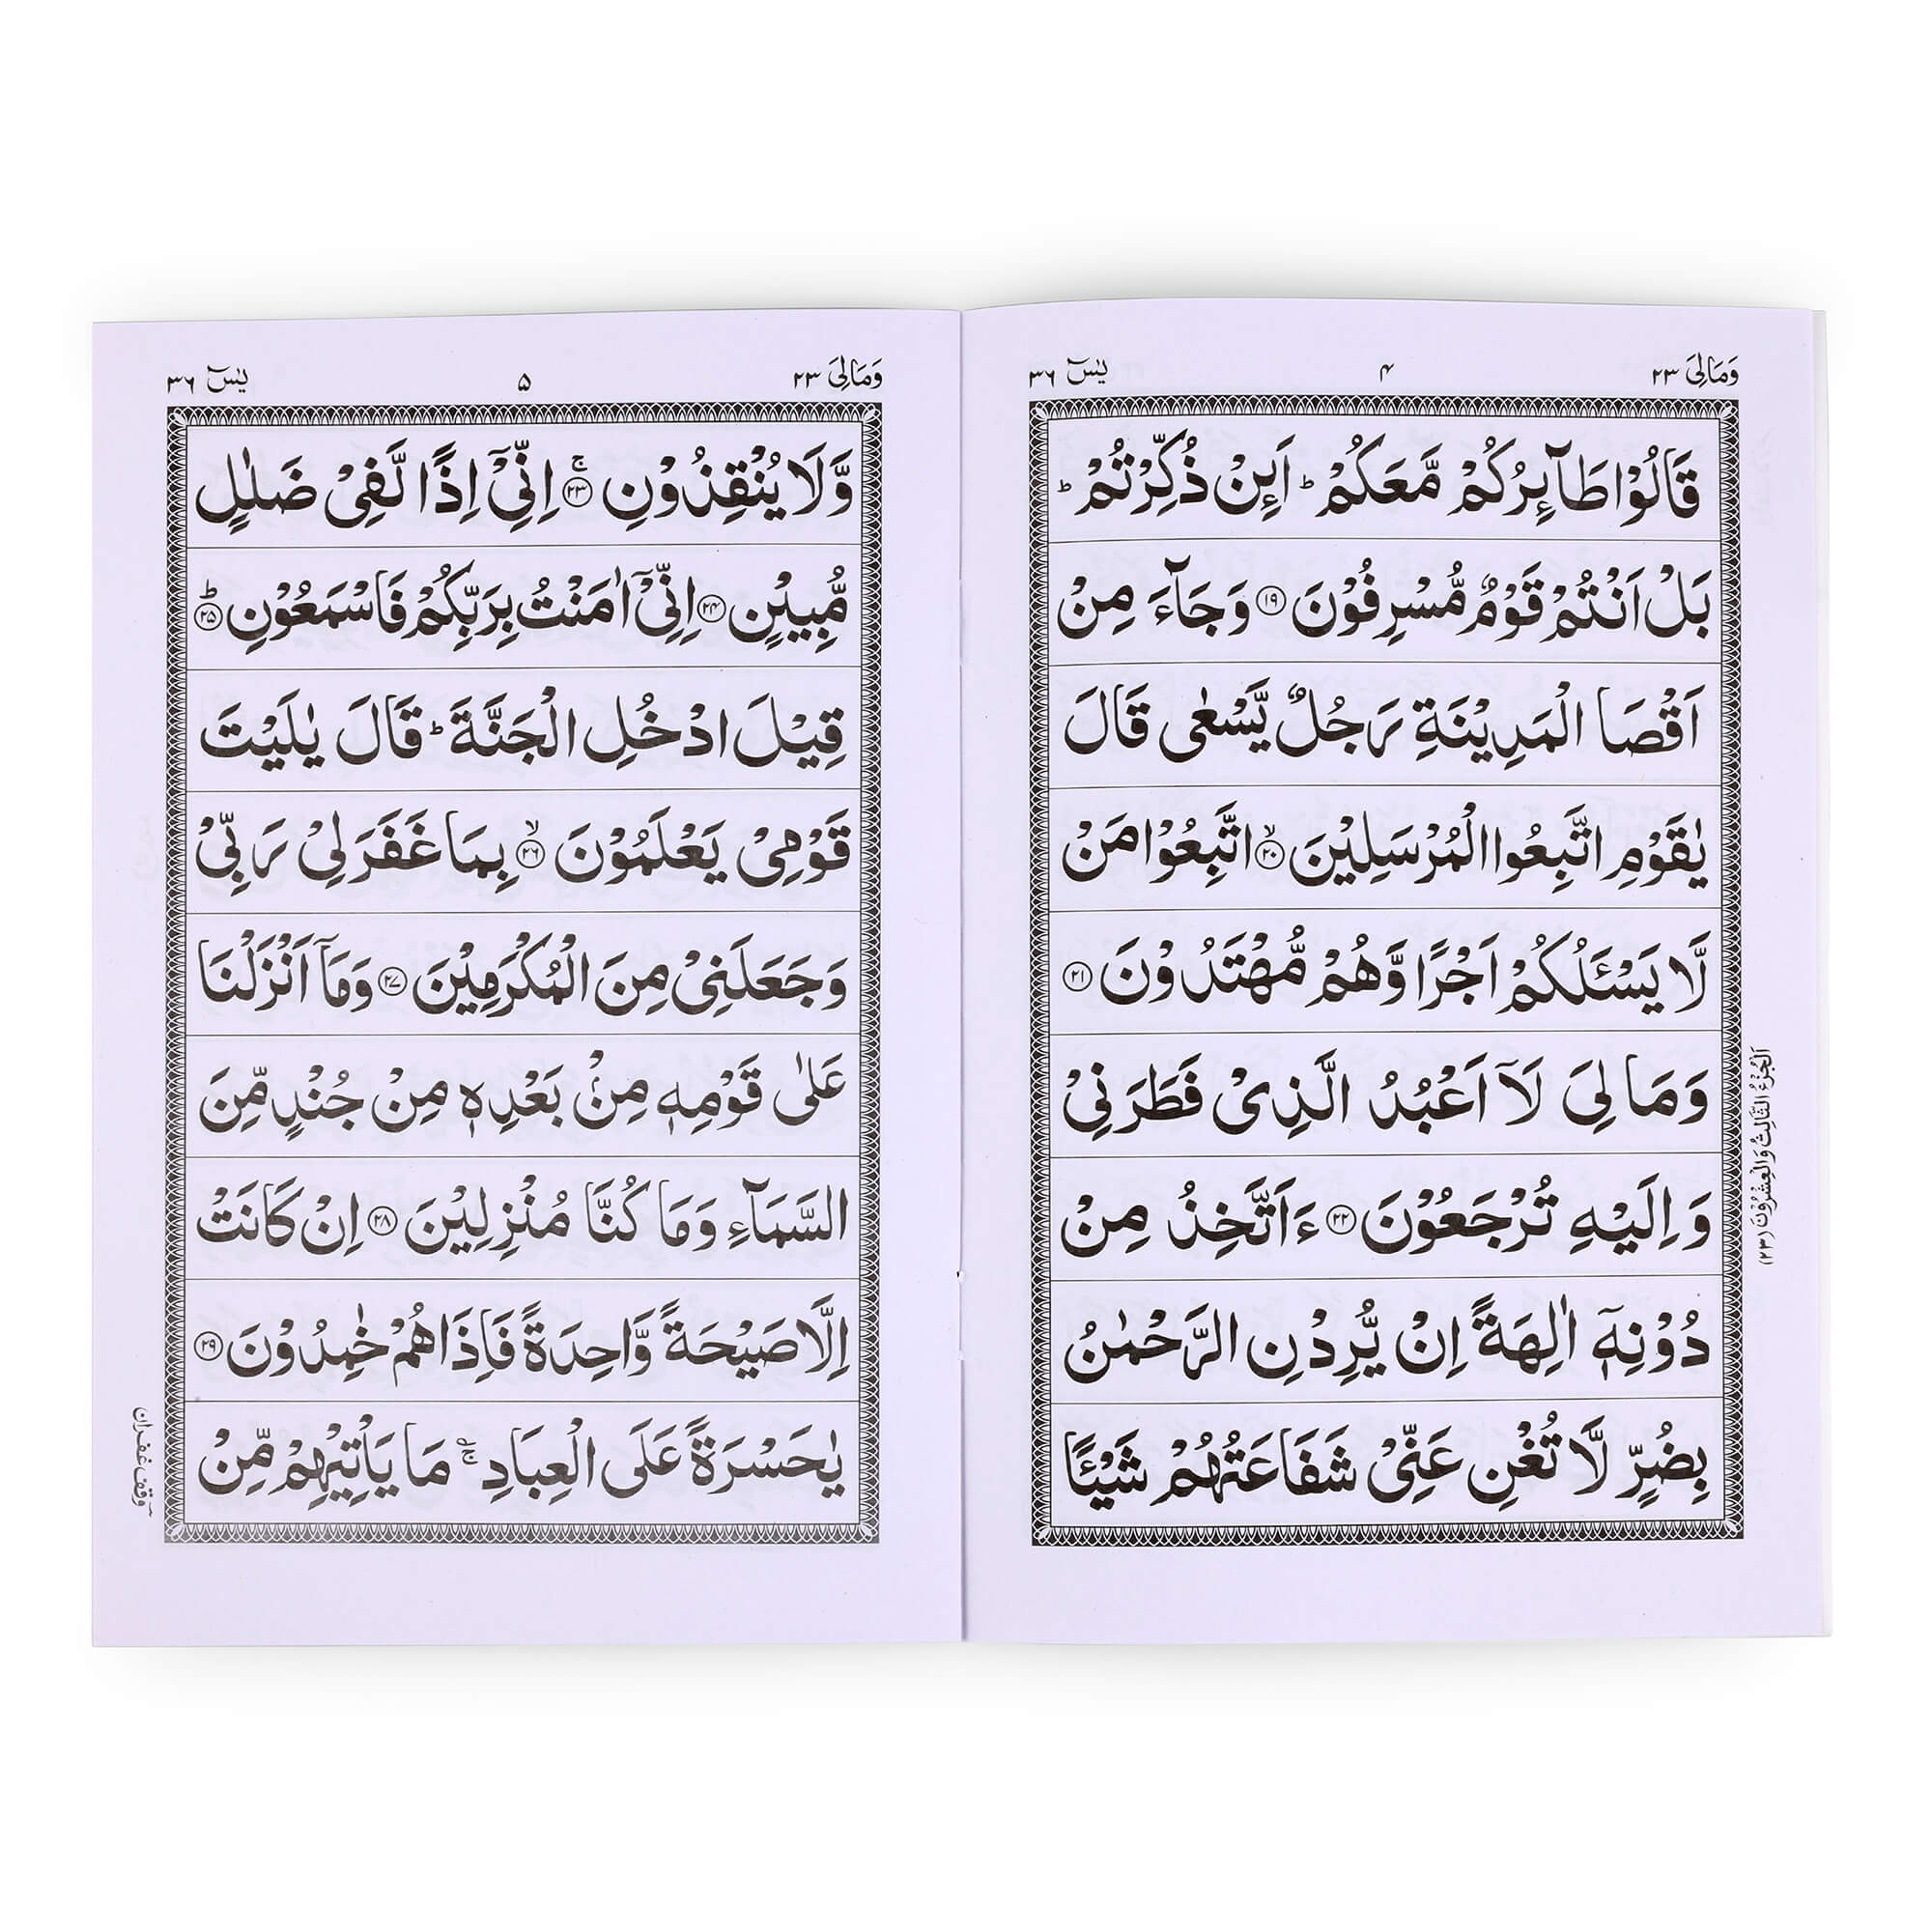 وَمَالِیَ ۲۳
۴
یٰسٓ ۳۶
قَالُوْا طَآىِٕرُكُمْ مَّعَكُمْ ؕ اَىِٕنْ ذُكِّرْتُمْ ؕ
بَلْ اَنْتُمْ قَوْمٌ مُّسْرِفُوْنَ ۝۱۹ وَجَآءَ مِنْ
اَقْصَا الْمَدِیْنَةِ رَجُلٌ یَّسْعٰی قَالَ
یٰقَوْمِ اتَّبِعُوا الْمُرْسَلِیْنَ ۝۲۰ۙ اتَّبِعُوْا مَنْ
لَّا یَسْـَٔلُكُمْ اَجْرًا وَّهُمْ مُّهْتَدُوْنَ ۝۲۱
وَمَا لِیَ لَاۤ اَعْبُدُ الَّذِیْ فَطَرَنِیْ
وَاِلَیْهِ تُرْجَعُوْنَ ۝۲۲ ءَاَتَّخِذُ مِنْ
دُوْنِهٖۤ اٰلِهَةً اِنْ یُّرِدْنِ الرَّحْمٰنُ
بِضُرٍّ لَّا تُغْنِ عَنِّیْ شَفَاعَتُهُمْ شَیْـًٔا
اَلْجُزْءُ الثَّالِثُ وَالْعِشْرُوْنَ (۲۳)
وَمَالِیَ ۲۳
۵
یٰسٓ ۳۶
وَّلَا یُنْقِذُوْنِ ۝۲۳ۚ اِنِّیْۤ اِذًا لَّفِیْ ضَلٰلٍ
مُّبِیْنٍ ۝۲۴ اِنِّیْۤ اٰمَنْتُ بِرَبِّكُمْ فَاسْمَعُوْنِ ۝۲۵ؕ
قِیْلَ ادْخُلِ الْجَنَّةَ ؕ قَالَ یٰلَیْتَ
قَوْمِیْ یَعْلَمُوْنَ ۝۲۶ۙ بِمَا غَفَرَ لِیْ رَبِّیْ
وَجَعَلَنِیْ مِنَ الْمُكْرَمِیْنَ ۝۲۷ وَمَاۤ اَنْزَلْنَا
عَلٰی قَوْمِهٖ مِنْۢ بَعْدِهٖ مِنْ جُنْدٍ مِّنَ
السَّمَآءِ وَمَا كُنَّا مُنْزِلِیْنَ ۝۲۸ اِنْ كَانَتْ
اِلَّا صَیْحَةً وَّاحِدَةً فَاِذَا هُمْ خٰمِدُوْنَ ۝۲۹
یٰحَسْرَةً عَلَی الْعِبَادِ ۣۚ مَا یَاْتِیْهِمْ مِّنْ
وقف غفران